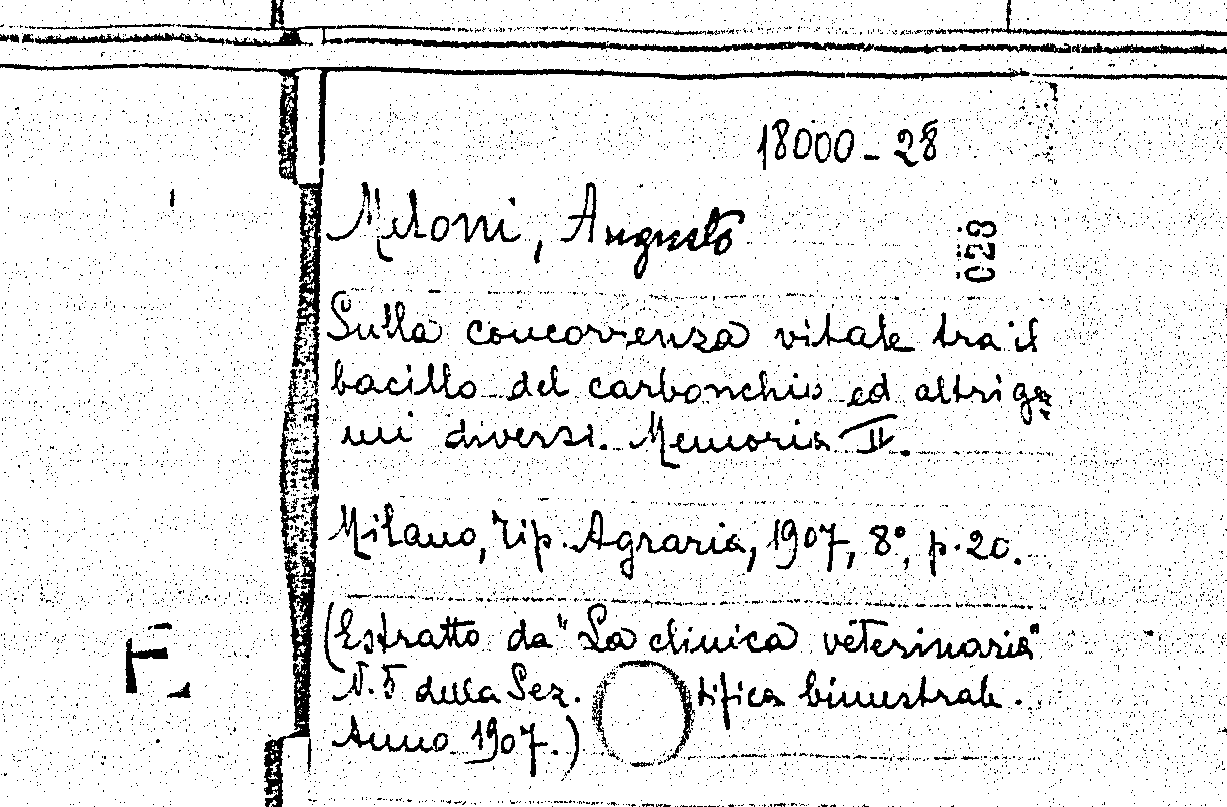 18000-28
Meloni, Augusto
028
Sulla concorrenza vitale tra il
bacillo del carbonchio ed altri ger
mi diversi. Memoria II.
Milano, Tip. Agraria, 1907, 8°, p. 20.
(Estratto da "La clinica veterinaria"
N. 5 della Sez. tifica bimestrale.
Anno 1907.)